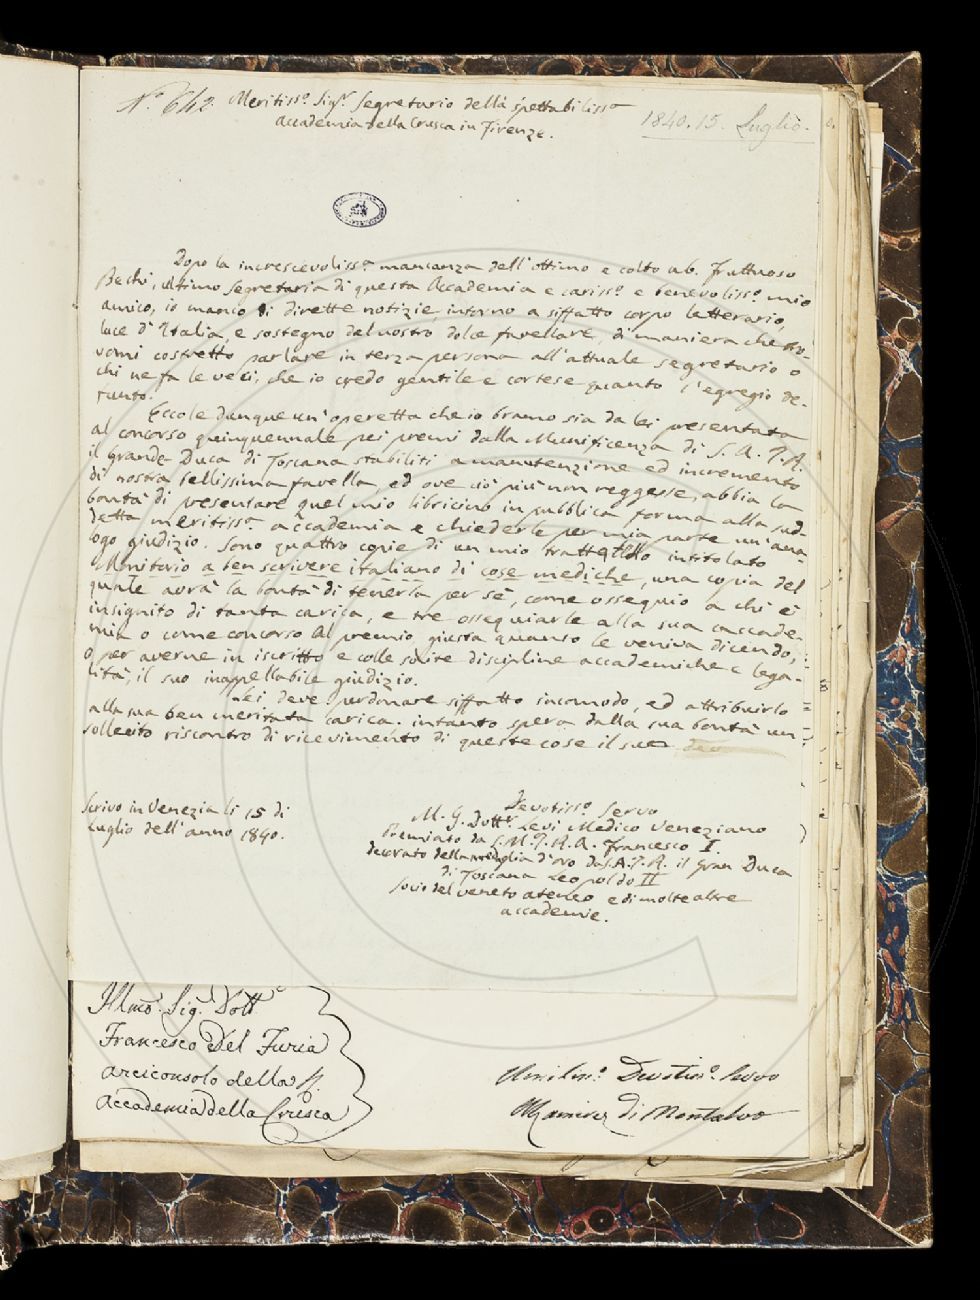 N.° 642
Meritiss.° Sig.r Segretario della spettabiliss.a
Accademia della Crusca in Firenze.
1840. 15. Luglio.
Dopo la increscevoliss.a mancanza dell'ottimo e colto ab. Fruttuoso
Bechi, ultimo Segretario di questa Accademia e cariss.° e benevoliss.° mio
amico, io manco di dirette notizie intorno a siffatto corpo letterario,
luce d'Italia, e sostegno del nostro dolce favellare, di maniera che tro-
vomi costretto parlare in terza persona all'attuale segretario o
chi ne fa le veci, che io credo gentile e cortese quanto l'egregio de-
funto.
Eccole dunque un'operetta che io bramo sia da lei presentata
al concorso quinquennale pei premi dalla Munificenza di S. A. I. R.
il Grande Duca di Toscana stabiliti a manutenzione ed incremento
di nostra bellissima favella, ed ove ciò più non reggesse, abbia la
bontà di presentare quel mio libricino in pubblica forma alla sud-
detta meritiss.a accademia e chiederle per mia parte un'ana-
logo giudizio. Sono quattro copie di un mio trattatello intitolato
Monitorio a ben scrivere italiano di cose mediche, una copia del
quale avrà la bontà di tenerla per sè, come ossequio a chi è
insignito di tanta carica, e tre ossequiarle alla sua accade-
mia o come concorso al premio, giusta quanto le veniva dicendo,
o per averne in iscritto e colle solite discipline accademiche e lega-
lità, il suo inappellabile giudizio.
Lei deve perdonare siffatto incomodo, ed attribuirlo
alla sua ben meritata carica. intanto spera dalla sua bontà un
sollecito riscontro di ricevimento di queste cose il suo
Scrivo in Venezia li 15 di
Luglio dell'anno 1840.
Devotiss.° Servo
M. G. Dott.r Levi Medico Veneziano
Premiato da S. M. I. R. A. Francesco I.
decorato della medaglia d'oro da S. A. I. R. il Gran Duca
di Toscana Leopoldo II
Socio del veneto ateneo e di molte altre
accademie.
Illmo. Sig. Dott.
Francesco Del Furia
Arciconsolo della
Accademia della Crusca
Umiliss.° Devotiss.° Servo
Ramirez Di Montalvo